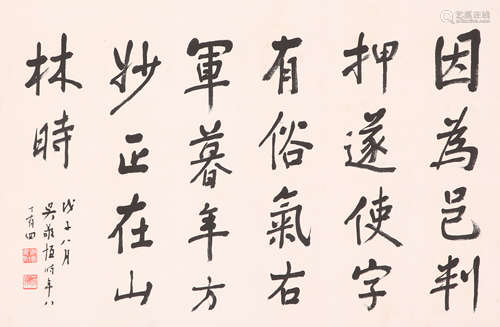 因為邑判
押遂使字
有俗氣右
軍暮年方
妙正在山
林時
戊子八月
吳敬恆時年八
十有四
艺苑在线